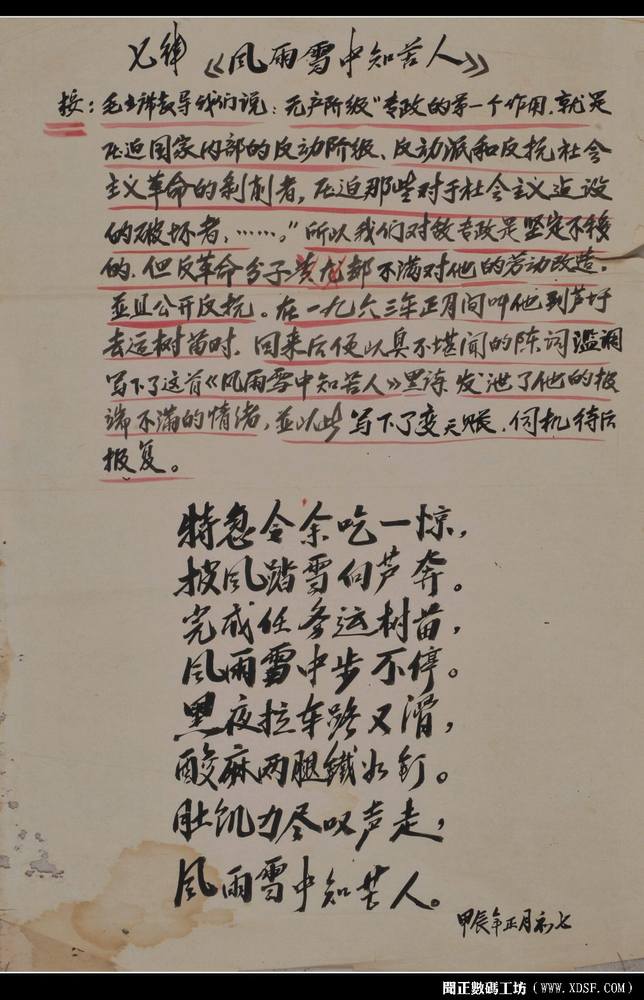 七律《风雨雪中知苦人》
按：毛主席教导我们说：无产阶级"专政的第一个作用，就是
压迫国家内部的反动阶级、反动派和反抗社会
主义革命的剥削者，压迫那些对于社会主义建设
的破坏者，……。"所以我们对敌专政是坚定不移
的，但反革命分子黄 却不满对他的劳动改造，
並且公开反抗。在一九六三年正月间叫他到芦圩
去运树苗时，回来后便以臭不堪闻的陈词滥调
写下了这首《风雨雪中知苦人》黑诗发泄了他的极
端不满的情绪，並以此写下了变天账，伺机待后
报复。
特急令余吃一惊，
披风踏雪向芦奔。
完成任务运树苗，
风雨雪中步不停。
黑夜拉车路又滑，
酸麻两腿鐵如钉。
肚饥力尽叹声走，
风雨雪中知苦人。
甲辰年正月初七
閱正數碼工坊（www.XDSF.com）